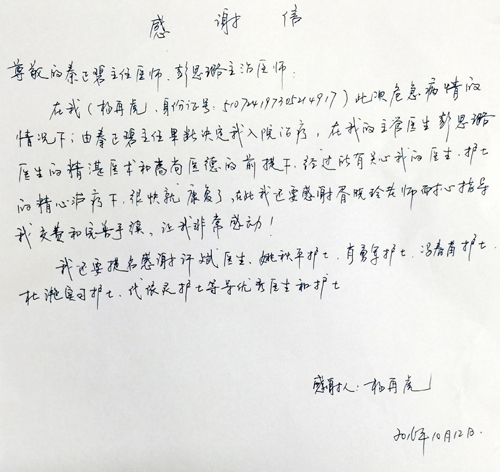 感谢信
尊敬的秦正碧主任医师、彭思璐主治医师：
在我（杨再虎，身份证号：）此次危急病情的
情况下；由秦正碧主任果断决定我入院治疗，在我的主管医生彭思璐
医生的精湛医术和高尚医德的前提下，经过所有关心我的医生、护士
的精心治疗下，很快就康复了，在此我还要感谢胥晓玲老师耐心指导
我交费和完善手续，让我非常感动！
我还要提名感谢许斌医生、姚秋平护士、肖勇军护士、冯春南护士、
杜漩实习护士、代依灵护士等等优秀医生和护士
感谢人：杨再虎
10月12日.